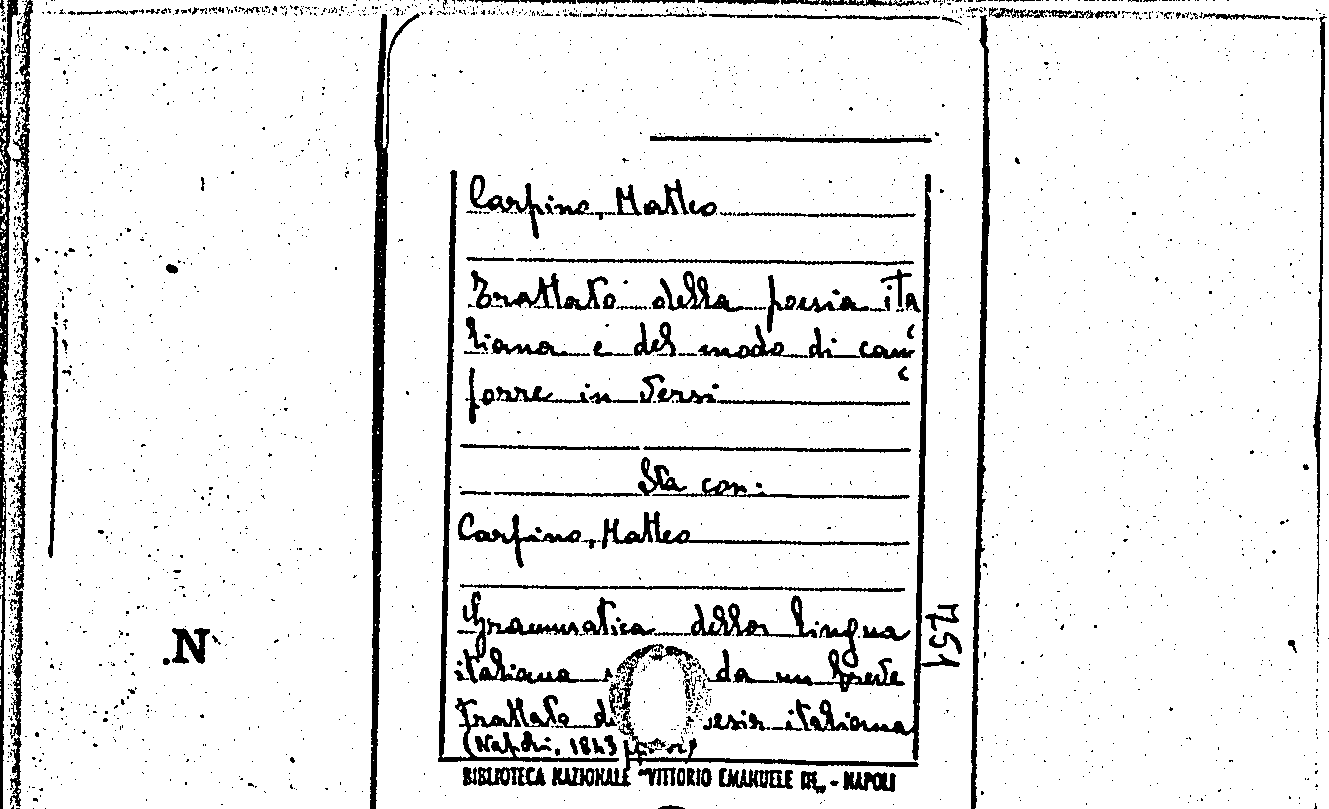 Carpino, Matteo
Trattato della poesia ita
liana e del modo di com
porre in versi
Sta con:
Carpino, Matteo
Grammatica della lingua
italiana da un breve
trattato di italiana
(Napoli, 1843
BIBLIOTECA NAZIONALE "VITTORIO EMANUELE III„ - NAPOLI
751
.N